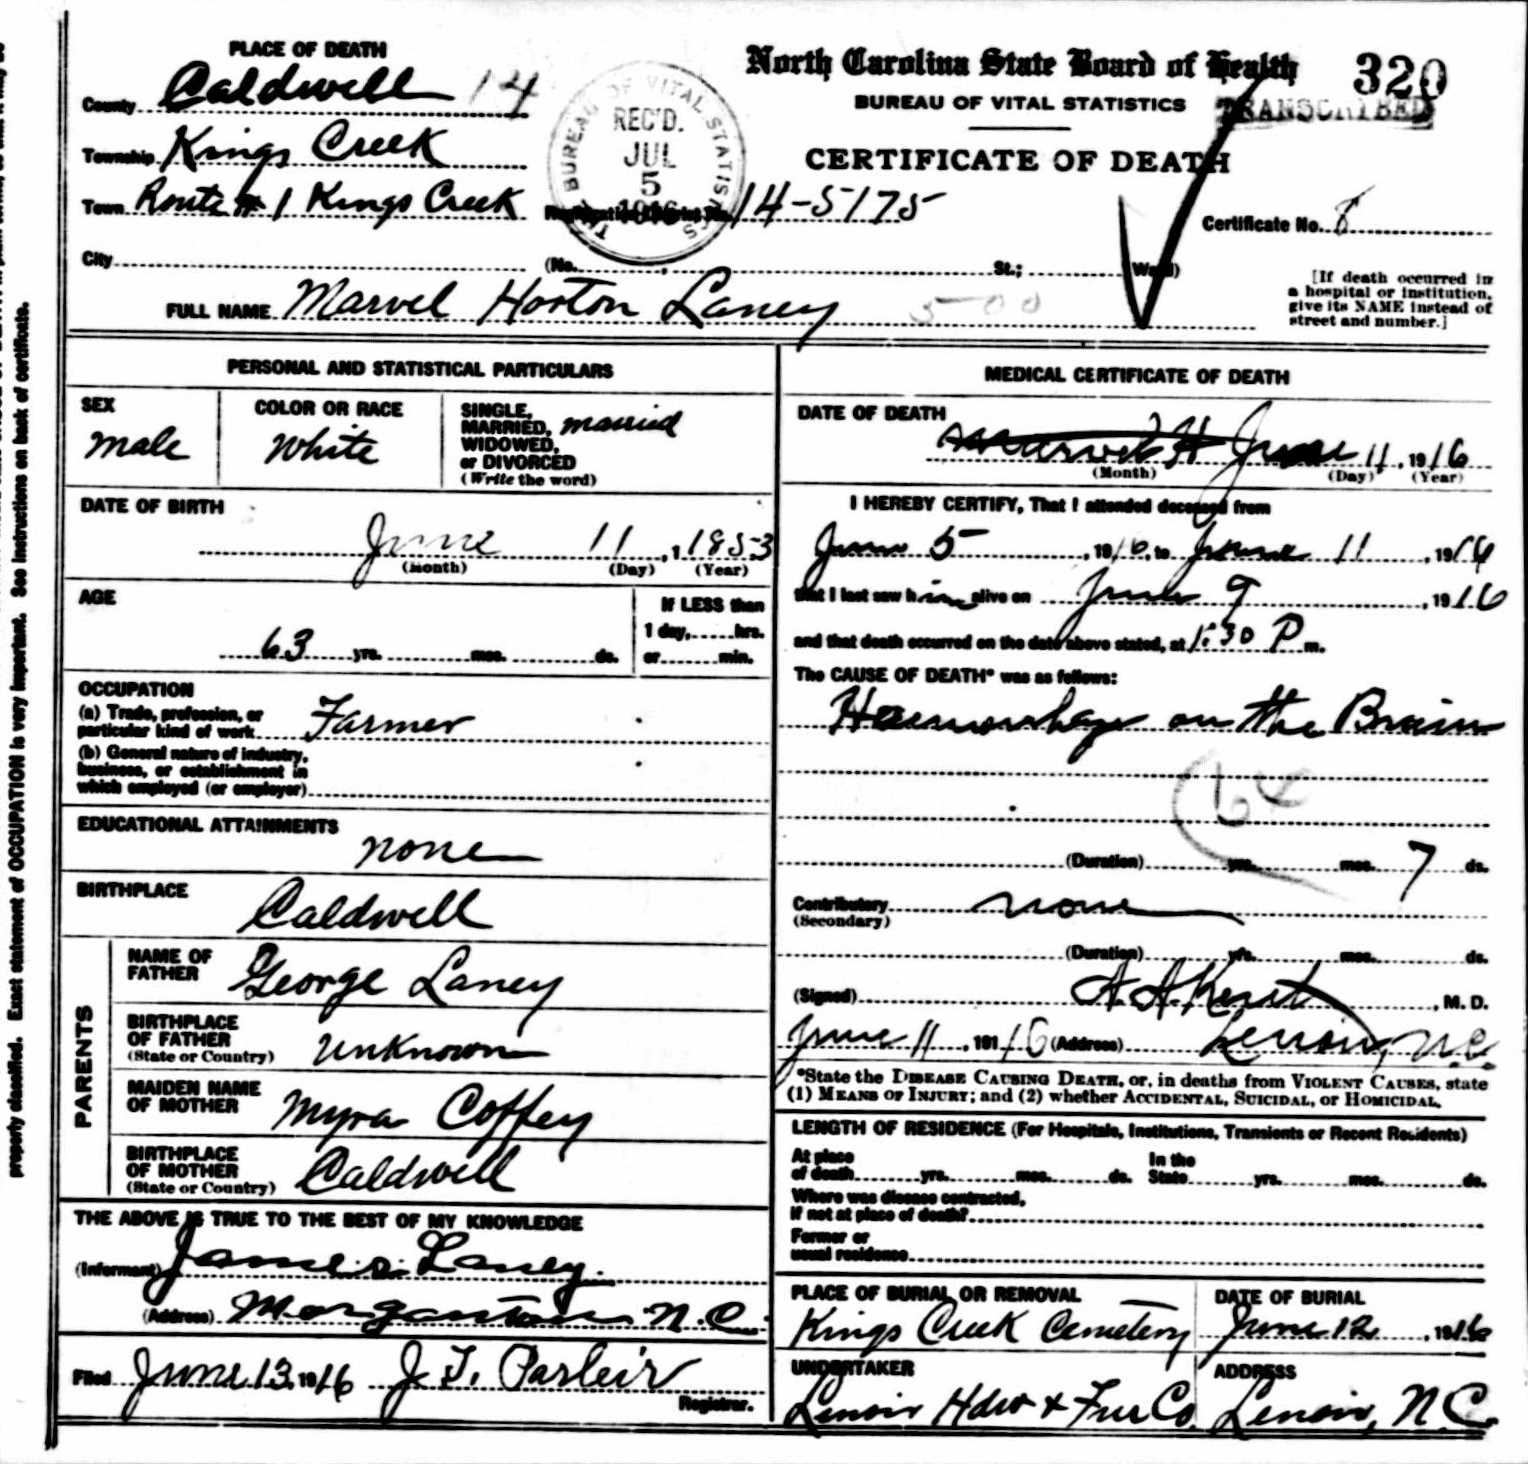 PLACE OF DEATH
County Caldwell 14
Township Kings Creek
Town Route #1 Kings Creek
North Carolina State Board of Health 320
BUREAU OF VITAL STATISTICS TRANSCRIBED
CERTIFICATE OF DEATH
THE BUREAU OF VITAL STATISTICS
REC'D.
JUL
5
1916
14-5175
Certificate No. 8
City (No. , St.; Ward)
[If death occurred in
a hospital or institution,
give its NAME instead of
street and number.]
FULL NAME Marvel Horton Laney 500
property classified. Exact statement of OCCUPATION is very important. See instructions on back of certificate.
PERSONAL AND STATISTICAL PARTICULARS
SEX
male
COLOR OR RACE
White
SINGLE,
MARRIED, married
WIDOWED,
or DIVORCED
(Write the word)
DATE OF BIRTH
June 11, 1 1853
(Month) (Day) (Year)
AGE
63 yrs. mos. ds.
If LESS than
1 day, hrs.
or min.
OCCUPATION
(a) Trade, profession, or
particular kind of work Farmer
(b) General nature of industry,
business, or establishment in
which employed (or employer)
EDUCATIONAL ATTAINMENTS
none
BIRTHPLACE
Caldwell
PARENTS
NAME OF
FATHER George Laney
BIRTHPLACE
OF FATHER
(State or Country) unknown
MAIDEN NAME
OF MOTHER Myra Coffey
BIRTHPLACE
OF MOTHER
(State or Country) Caldwell
THE ABOVE IS TRUE TO THE BEST OF MY KNOWLEDGE
(Informant) James Laney.
(Address) Morganton N.C.
Filed June 13, 1916 J. T.
Registrar.
MEDICAL CERTIFICATE OF DEATH
DATE OF DEATH
June 11, 1916
(Month) (Day) (Year)
I HEREBY CERTIFY, That I attended deceased from
June 5, 1916, to June 11, 1916
that I last saw him alive on June 9, 1916
and that death occurred on the date above stated, at 1:30 P m.
The CAUSE OF DEATH* was as follows:
Haemorhage on the Brain
64
(Duration) yrs. mos. 7 ds.
Contributory none
(Secondary)
(Duration) yrs. mos. ds.
(Signed) A. A. Kent, M. D.
June 11, 1916 (Address) Lenoir, N.C.
*State the DISEASE CAUSING DEATH, or, in deaths from VIOLENT CAUSES, state
(1) MEANS OF INJURY; and (2) whether ACCIDENTAL, SUICIDAL, or HOMICIDAL.
LENGTH OF RESIDENCE (For Hospitals, Institutions, Transients or Recent Residents)
At place
of death yrs. mos. ds.
In the
State yrs. mos. ds.
Where was disease contracted,
if not at place of death?
Former or
usual residence
PLACE OF BURIAL OR REMOVAL
Kings Creek Cemetery
DATE OF BURIAL
June 12, 1916
UNDERTAKER
Lenoir Hdw & Fur Co.
ADDRESS
Lenoir, N.C.